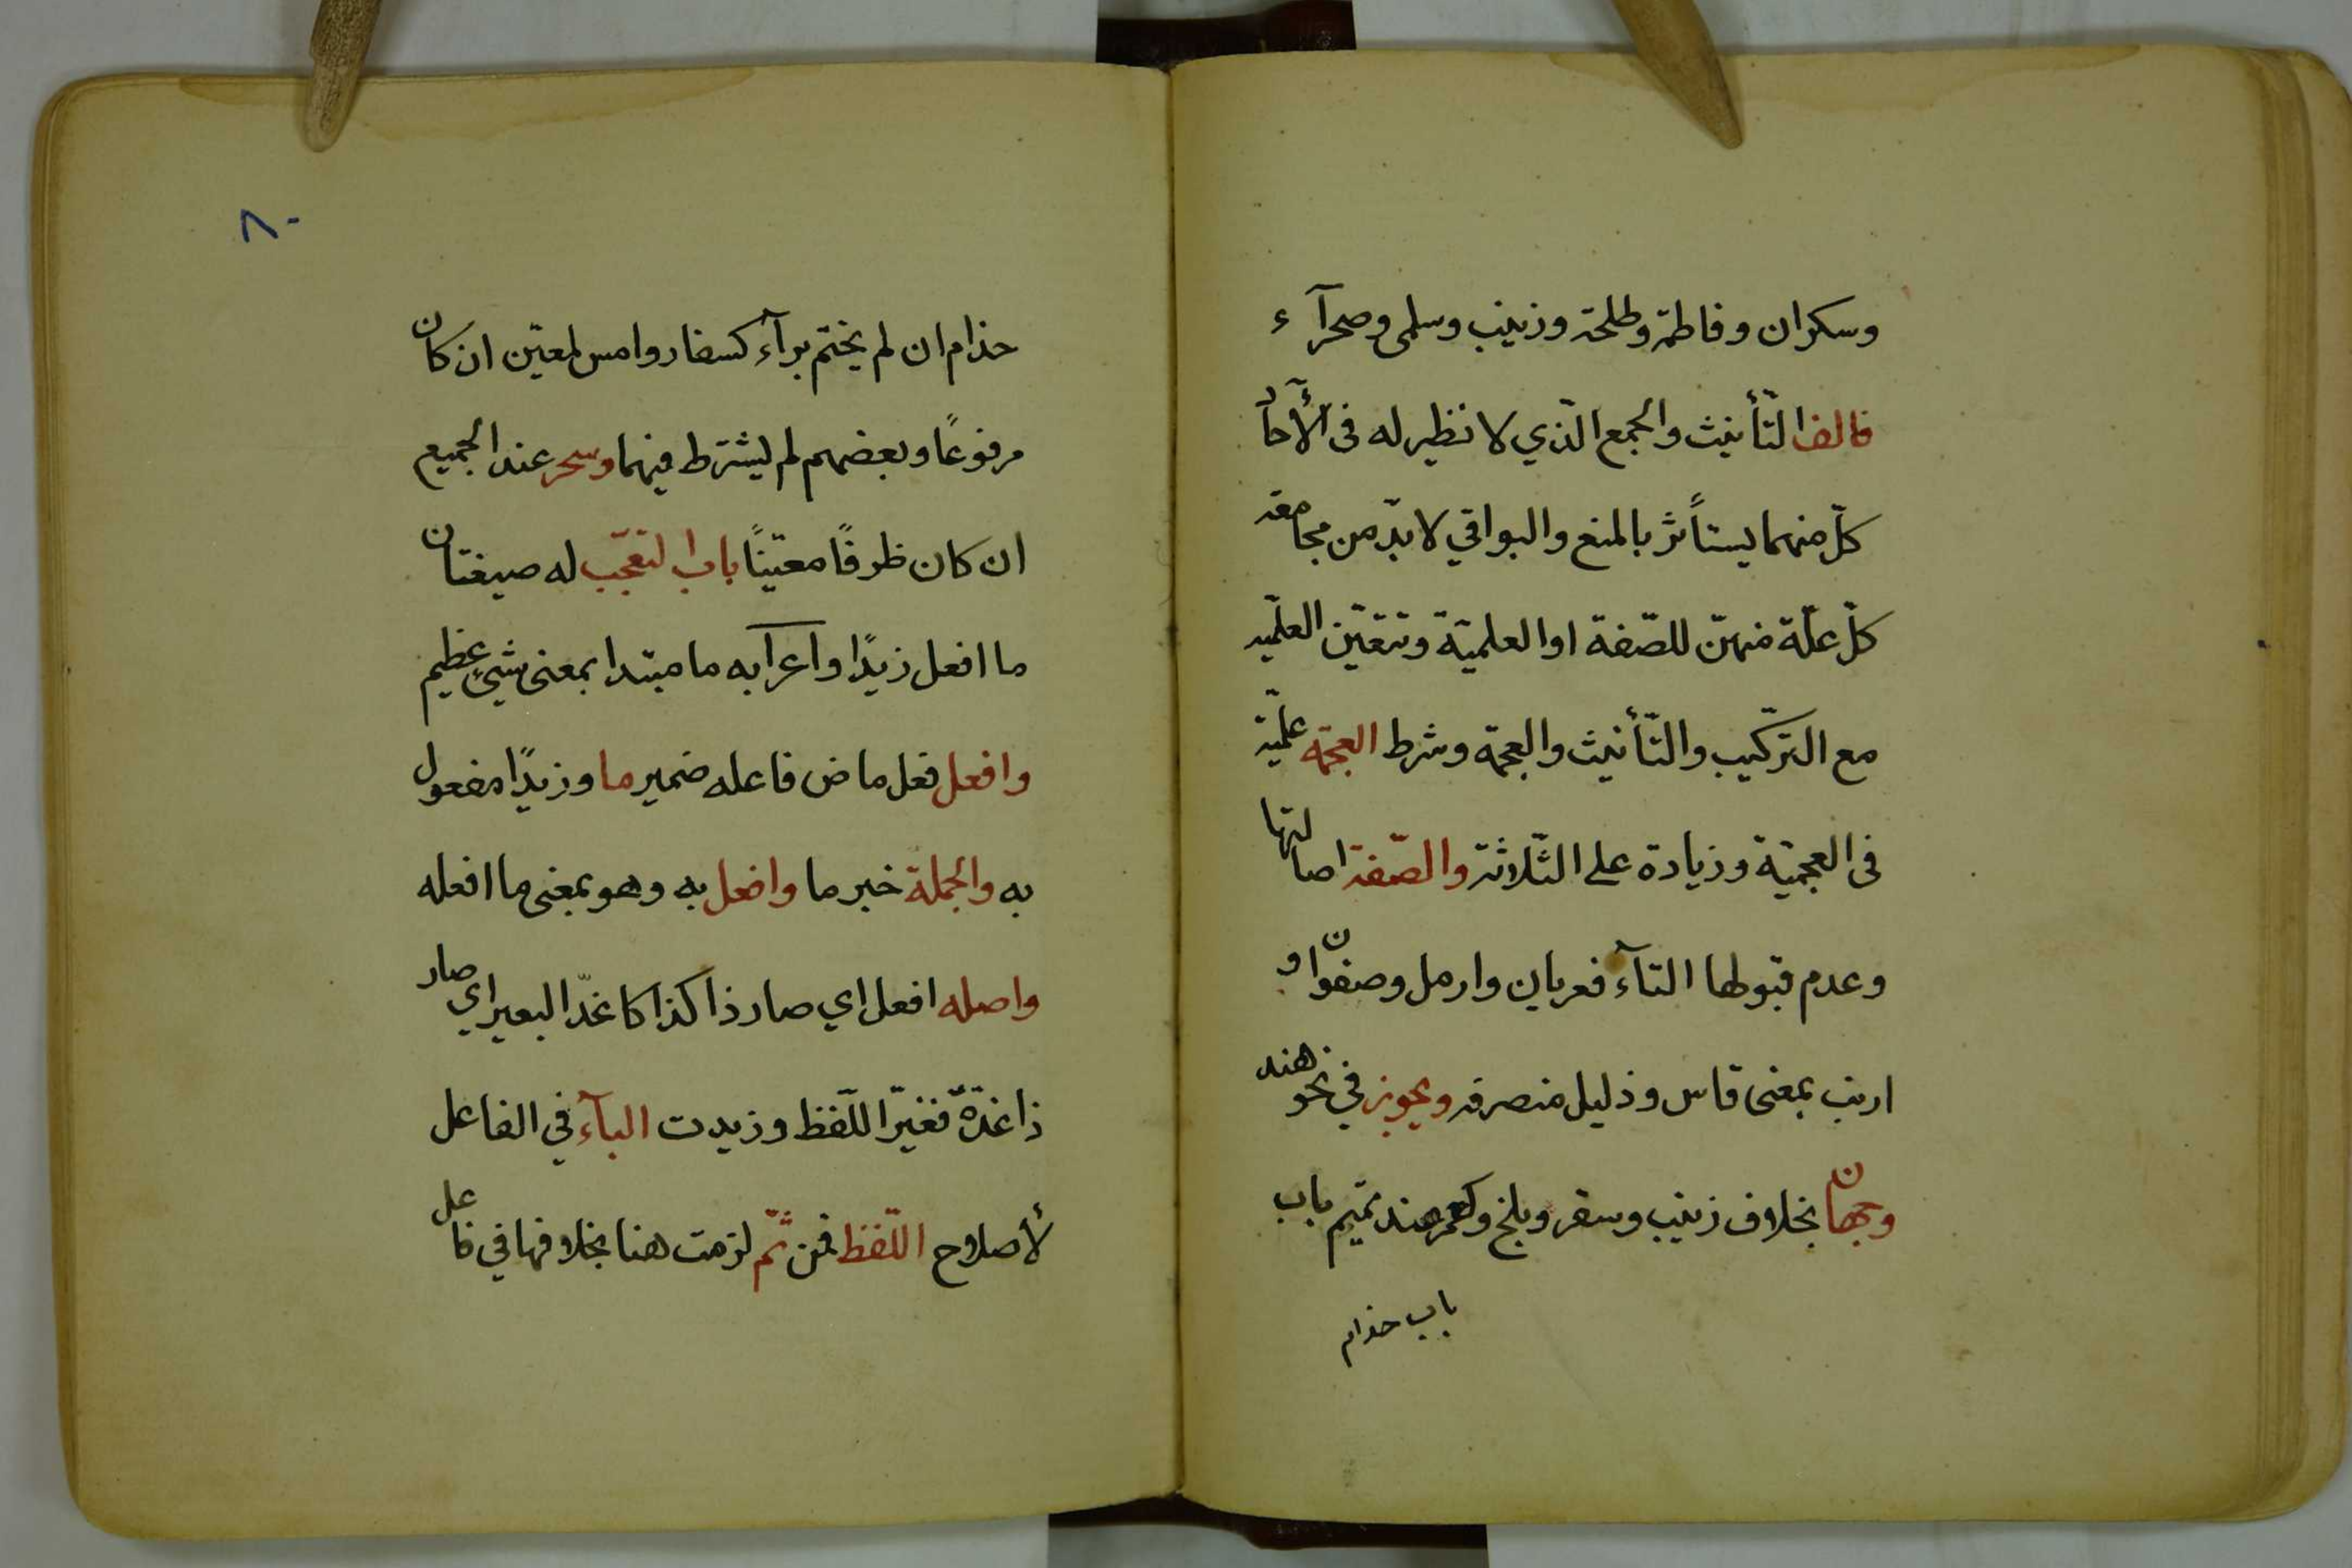 وسكران وفاطمة وطلحة وزينب وسلمى وصحرآء
فالف التّأنيث والجمع الّذي لا نظير له فى الأحآد
كلّ منهما يستأثر بالمنع والبواقي لا بدّ من مجامعة
كلّ علّة منهنّ للصّفة او العلميّة وتتعيّن العلميّة
مع التّركيب والتّأنيث والعجمة وشرط العجمة علميّة
فى العجميّة وزيادة على الثّلاثة والصّفة اصالتها
وعدم قبولها التآء فعريان وارمل وصفوان و
ارنب بمعنى قاس وذليل منصرفة ويجوز في نحو هند
وجهان بخلاف زينب وسقر وبلخ وكعمر عند تميم باب
باب حذام
٨٠
حذام ان لم يختم برآء كسفار وامس لمعيّن ان كان
مرفوعًا وبعضهم لم يشترط فيهما وسحر عند الجميع
ان كان ظرفًا معيّنًا باب التعجّب له صيغتان
ما افعل زيدًا واعرآبه ما مبتدا بمعنى شيءٍ عظيم
وافعل فعل ماض فاعله ضمير ما وزيدًا مفعول
به والجملة خبر ما وافعل به وهو بمعنى ما افعله
واصله افعل اي صار ذا كذا كاغدّ البعير اي صار
ذا غدّة فغيّر اللّفظ وزيدت البآء في الفاعل
لأصلاح اللّفظ فمن ثمّ لزمت هنا بخلافها في فاعل